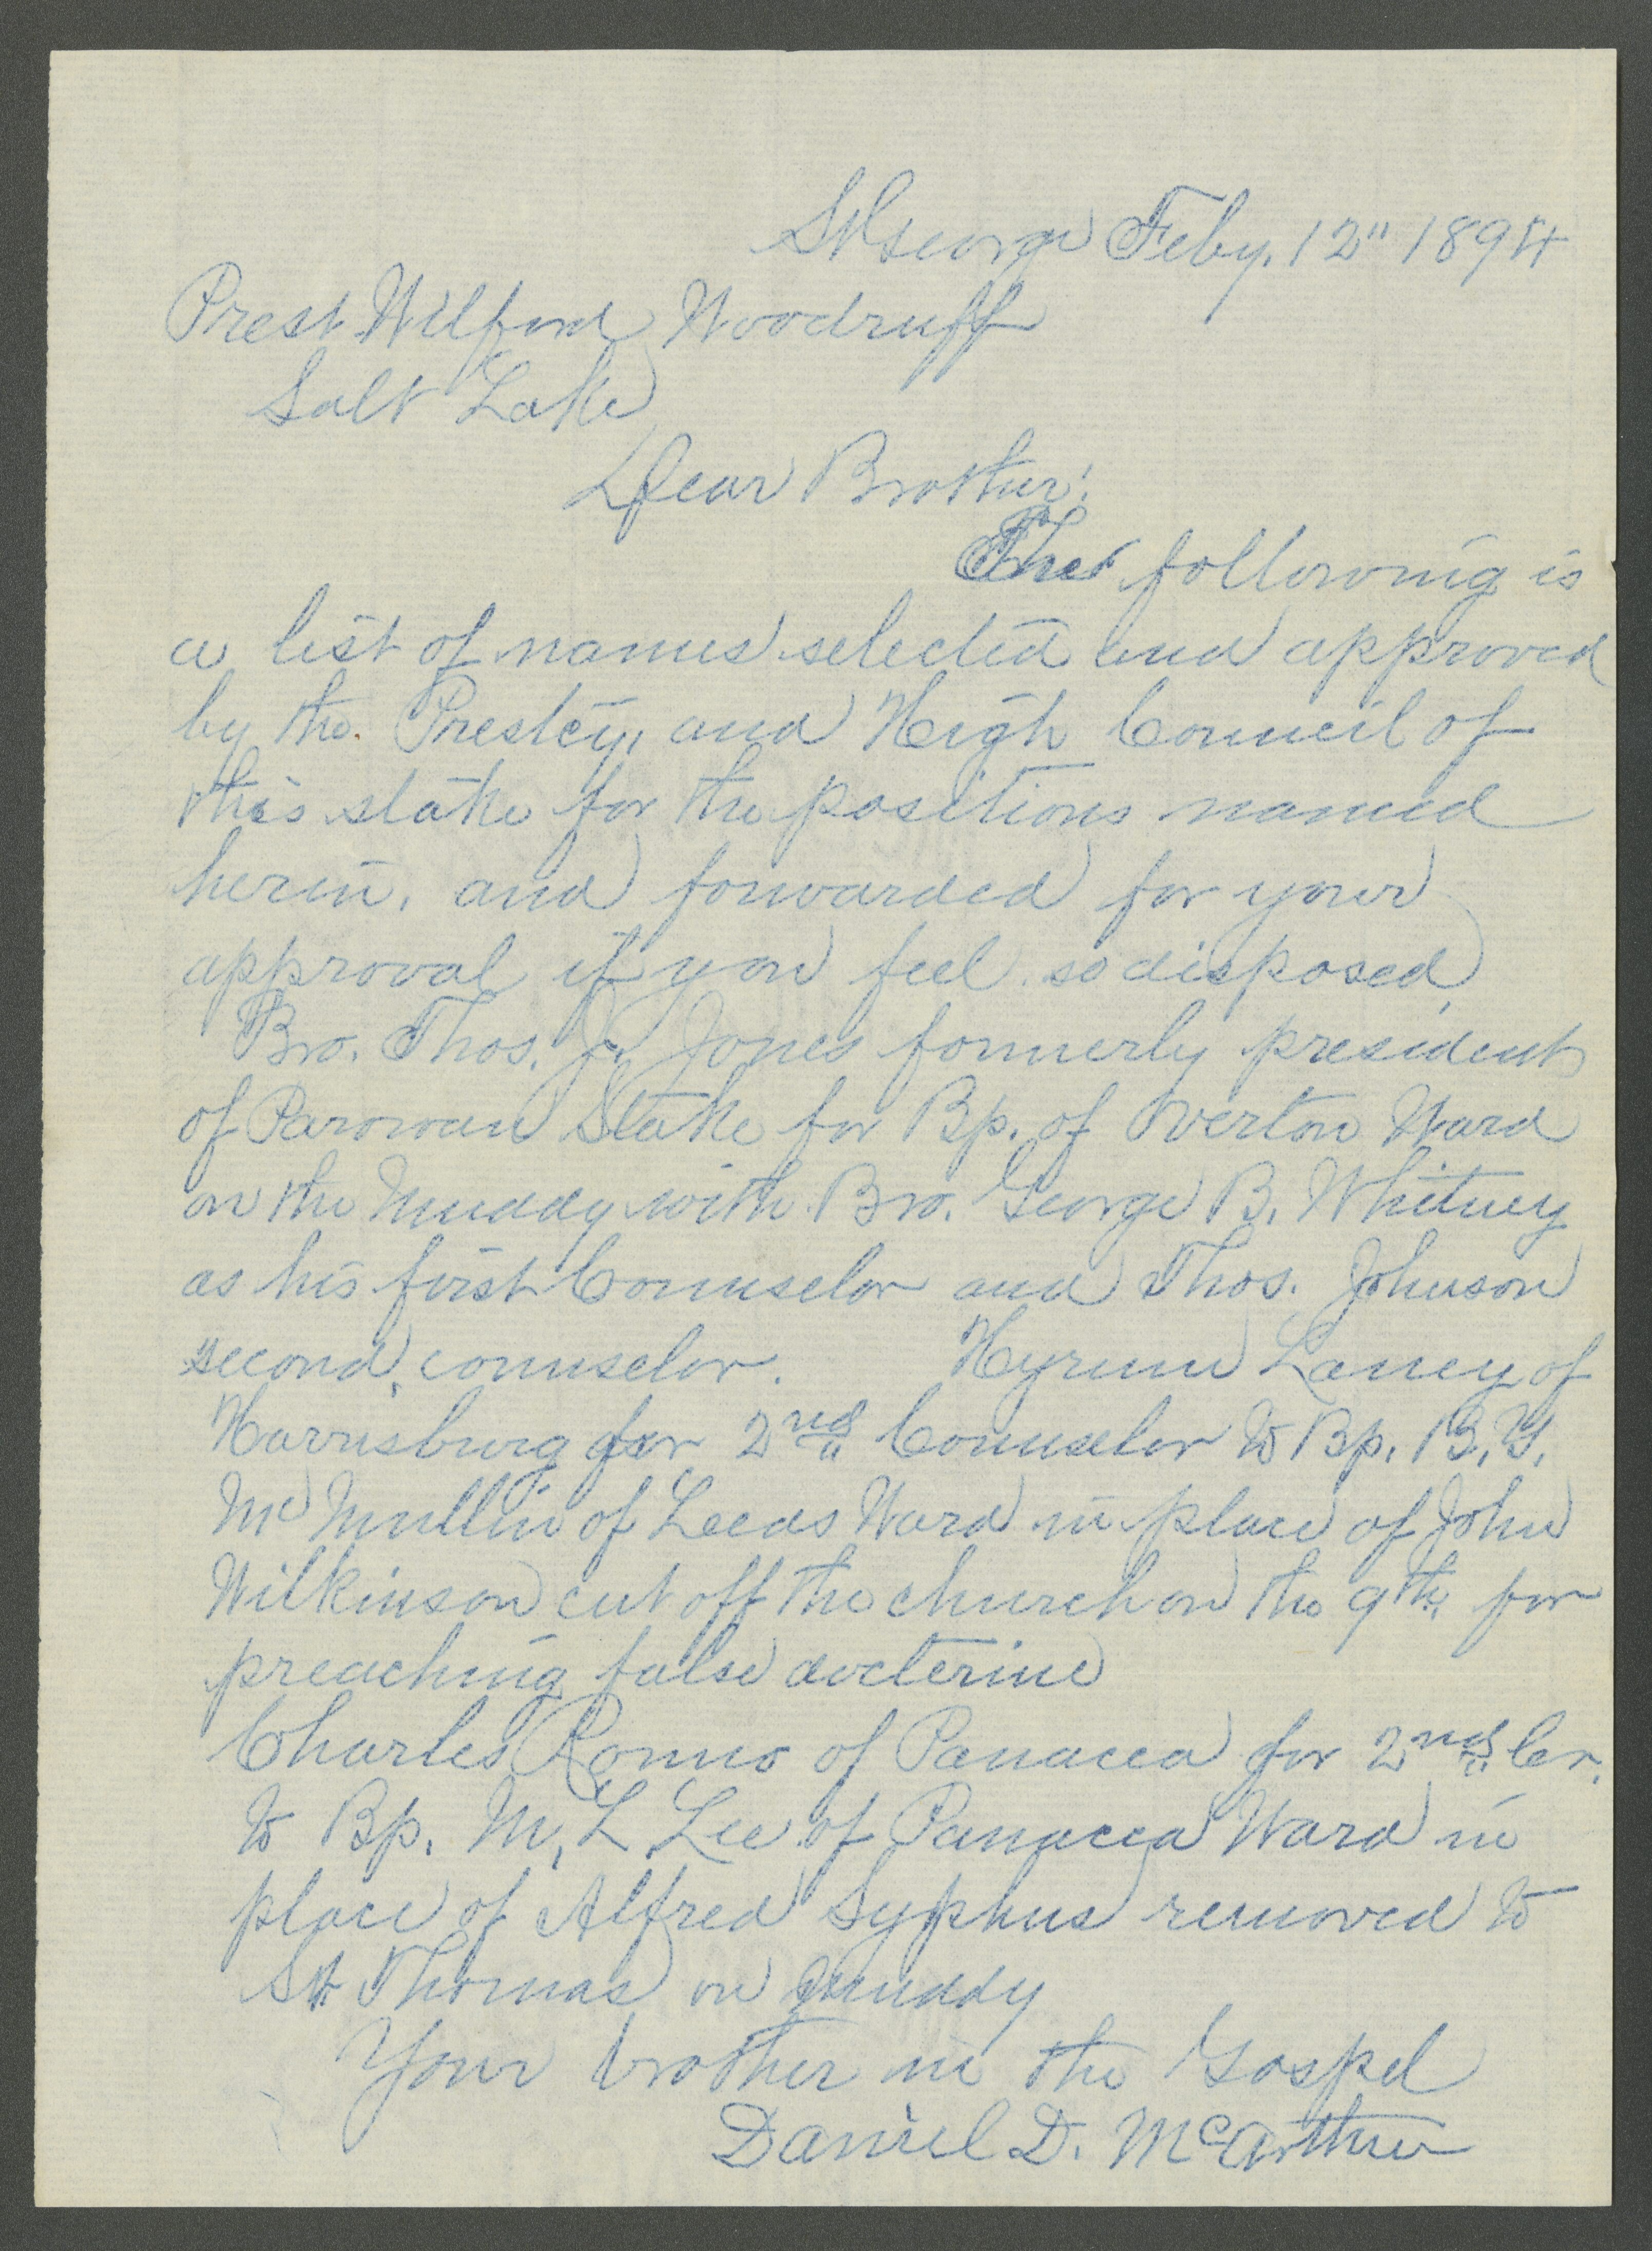 St George Feby. 12" 1894
Prest Wilford Woodruff
Salt Lake
Dear Brother:
The following is
a list of names selected and approved
by the Prestcy, and High Council of
this stake for the positions named
herin, and forwarded for your
approval if you feel so disposed
Bro. Thos. J. Jones formerly president
of Parowan Stake for Bp. of Overton Ward
on the Muddy with Bro. George B. Whitney
as his first Counselor and Thos. Johnson
second, counselor. Hyrum Laney of
Harrisburg for 2nd Counselor to Bp. B. Y.
McMullin of Leeds Ward in place of John
Wilkinson cut off the church on the 9th for
preaching false docterine
Charles Ronno of Panacea for 2nd Cr.
to Bp. M. L Lee of Panacea Ward in
place of Alfred Syphus removed to
St Thomas on Muddy
Your brother in the Gospel
Daniel D. McArthur